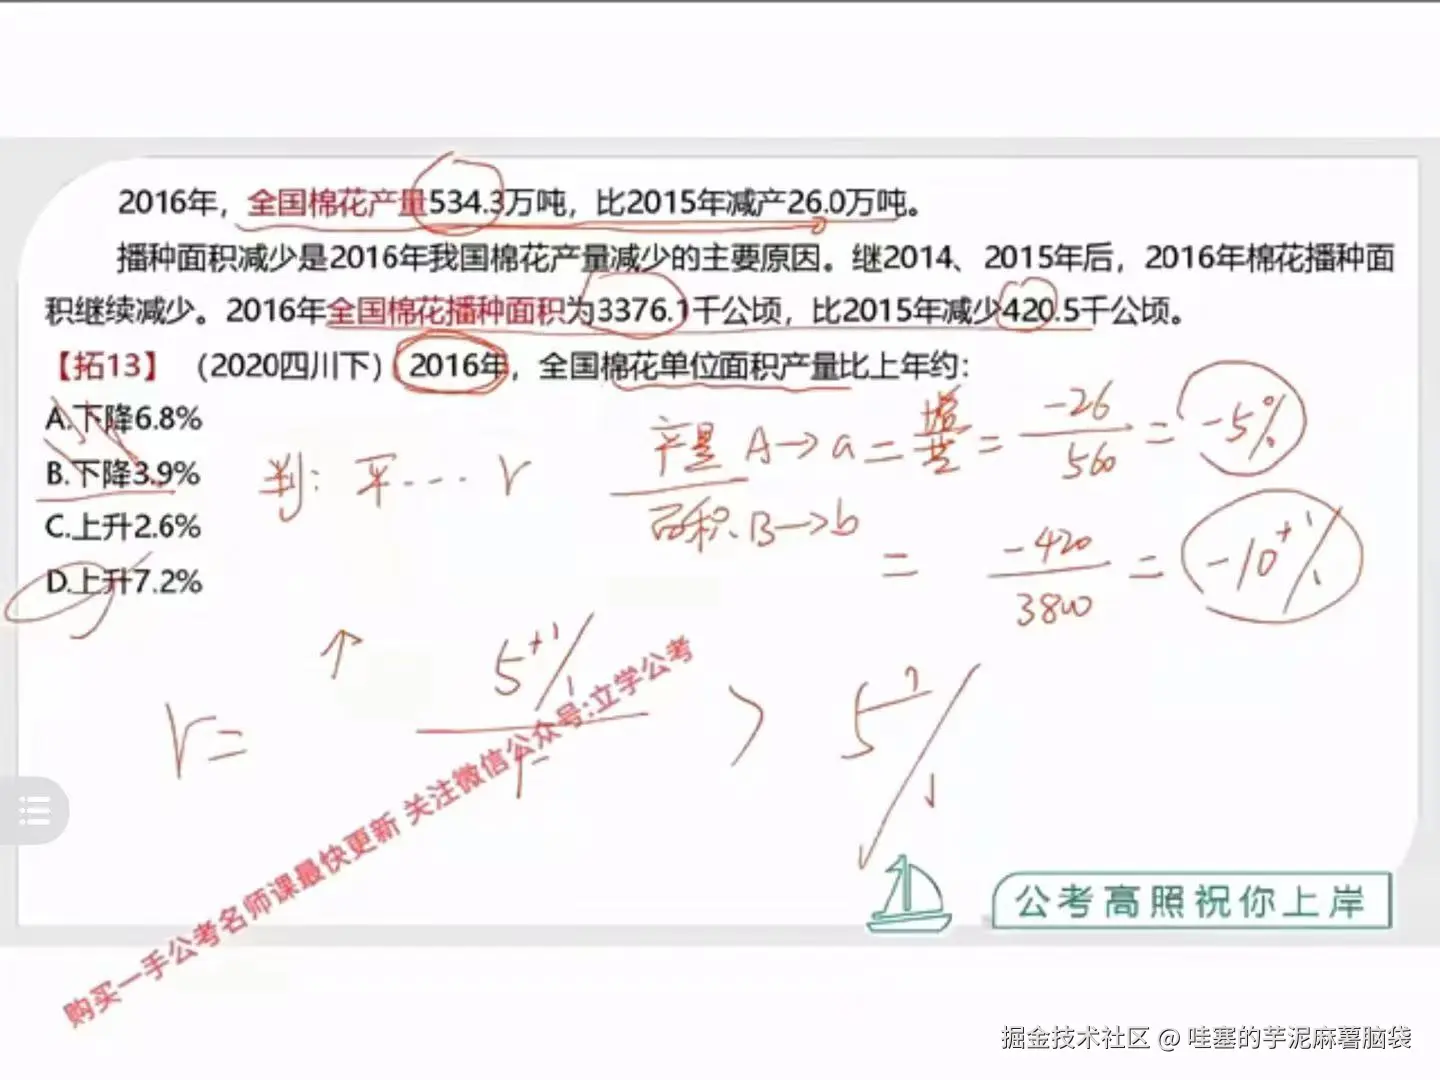 2016年，全国棉花产量534.3万吨，比2015年减产26.0万吨。
播种面积减少是2016年我国棉花产量减少的主要原因。继2014、2015年后，2016年棉花播种面
积继续减少。2016年全国棉花播种面积为3376.1千公顷，比2015年减少420.5千公顷。
【拓13】（2020四川下）2016年，全国棉花单位面积产量比上年约：
A.下降6.8%
B.下降3.9%
C.上升2.6%
D.上升7.2%
判: 平…r
产量 A→a = 增/基 = -26/560 = -5%
面积.B→b
= -420/3800 = -10⁺%
↑
r= 5⁺%/1- > 5⁺%
购买一手公考名师课最快更新 关注微信公众号:立学公考
公考高照祝你上岸
掘金技术社区 @ 哇塞的芋泥麻薯脑袋